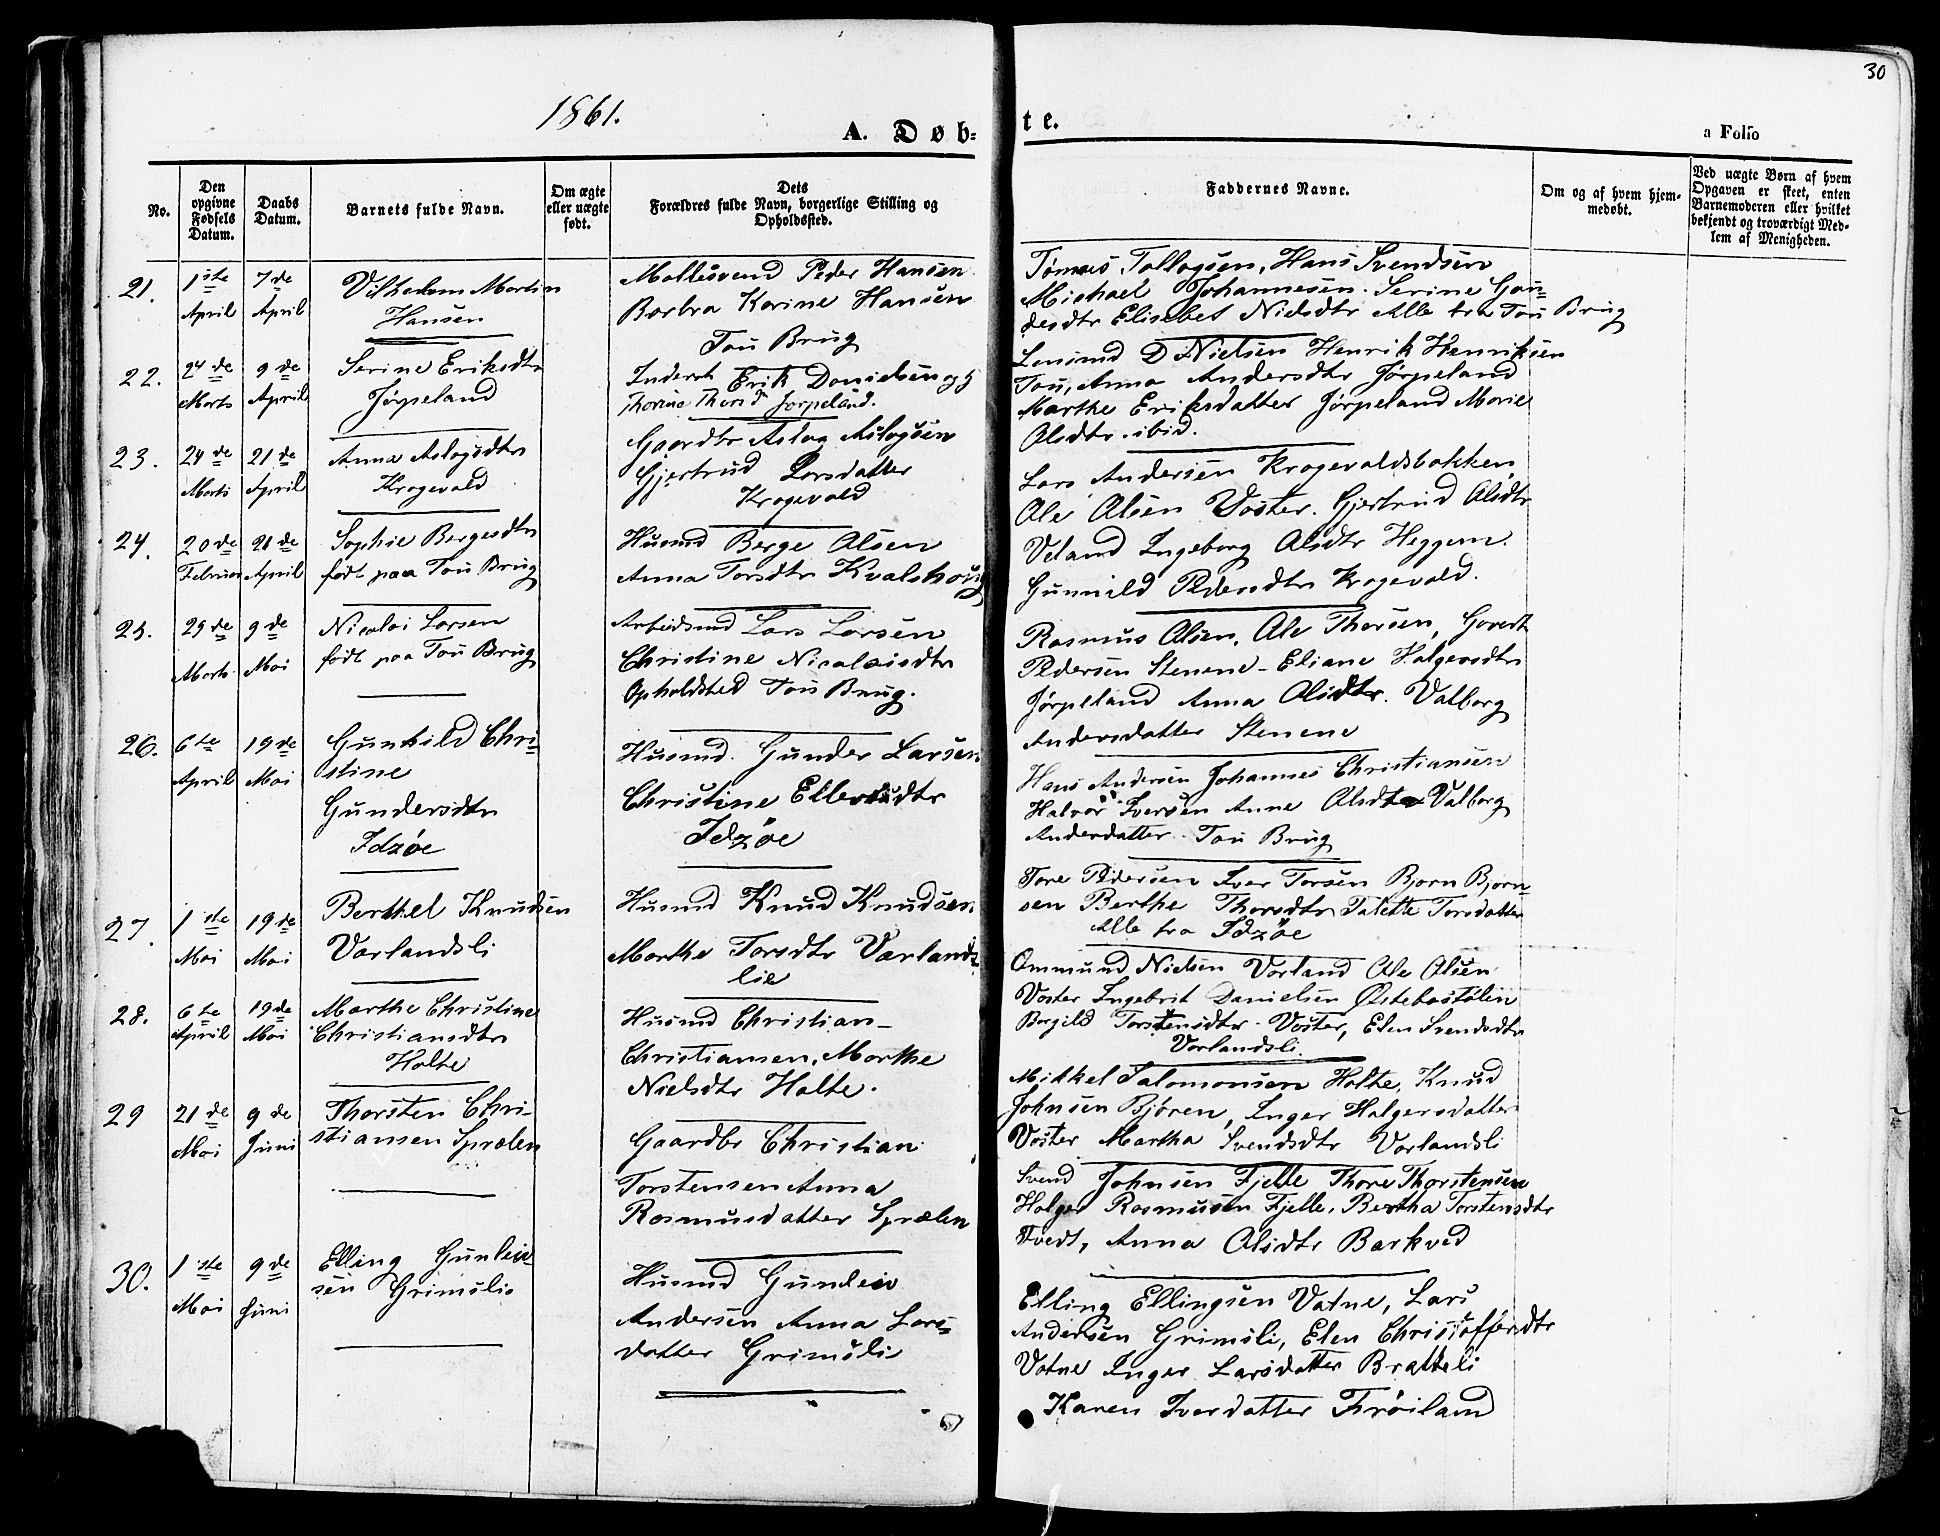 30
1861.
A. Døb-
te.
a Folio
No.
Den opgivne Fødsels Datum.
Daabs Datum.
Barnets fulde Navn.
Om ægte eller uægte født.
Dets Forældres fulde Navn, borgerlige Stilling og Opholdssted.
Faddernes Navne.
Om og af hvem hjemmedøbt.
Ved uægte Børn af hvem Opgaven er skeet, enten Barnemoderen eller hvilket bekjendt og troværdigt Medlem af Menigheden.
21.
1ste April
7de April
Vilhelom Martin
Hansen
Møllesvend Peder Hansen
Barbra Karine Hansen
Tou Brug
Tollogsen, Hans Svendsen
Michael Johannesen. Serine Gau-
desdtr Elisabet Nielsdtr Alle fra Tou Brug
22.
24de Marts
9de April
Serine Eriksdtr
Jørpeland
Inderst Erik Danielsen og
Thorine Thorsd Jørpeland.
D Nielsen Henrik Henriksen
Tou, Anna Andersdtr Jørpeland
Marthe Eriksdatter Jørpeland Marie
Olsdtr. ibid.
23.
24de Marts
21de April
Anna Aslogsdtr
Kragevald
Gaardbr Aslag Aslogsen
Gjertrud Larsdatter
Kragevald
Lars Andersen Kragevaldsbakken
Ole Olsen Voster. Gjertrud Olsdtr
Veland Ingeborg Olsdtr Heggem.
Gunnild Pedersdtr Kragevald.
24.
20de Februar
21de April
Sophie Bergesdtr
født paa Tou Brug
Husmd Berge Olsen
Anna Torsdtr Kvalshoug
Rasmus Olsen. Ole Thorsen, Govert
Pedersen Stenene - Eliane Halgersdtr
Jørpeland Anna Olsdtr. Valborg
Andersdatter Stenene
25.
29de Marts
9de Mai
Nicolai Larsen
født paa Tou Brug
Arbeidsmd Lars Larsen
Christine Nicolaisdtr
Opholdsted Tou Brug.
Hans Andersen Johannes Christiansen
Halvor Iversen Anne Olsdtr Valborg
Andersdatter - Tou Brug
26.
6te April
19de Mai
Gunhild Chri-
stine
Gundersdtr
Idzøe
Husmd. Gunder Larsen
Christine Ellevsdtr
Idzøe
Tore Pedersen Iver Torsen Bjorn Bjorn-
sen Berthe Thorsdtr Talette Torsdatter
Alle fra Idzøe
27.
1ste Mai
19de Mai
Berthel Knudsen
Vorlandsli
Husmd Knud Knudsen
Marthe Torsdtr Varlands-
lie
Ommund Nielsen Vorland Ole Olsen
Voster Ingebrit Danielsen Østebøstølen
Borgild Torstensdtr - Voster, Elen Svendsdtr
Vorlandsli.
28.
6te April
19de Mai
Marthe Christine
Christiansdtr
Holte
Husmd Christian
Christiansen, Marthe
Nielsdtr Holte.
Mikkel Salomonsen Holte, Knud
Johnsen Bjøren, Inger Halgersdatter
Voster Martha Svendsdtr Vorlandsli
29
21de Mai
9de Juni
Thorsten Chri-
stiansen Sprælen
Gaardbr Christian
Torstensen Anna
Rasmusdatter Sprælen
Svend Johnsen Fjelle Thore Thorstensen
Holger Rasmusen Fjelle, Bertha Torstensdtr
Tvedt, Anna Olsdtr Barkved
30.
1ste Mai
9de Juni
Elling Gunleiv-
sen Grimsli
Husmd Gunleiv
Andersen Anna Lars-
datter Grimsli
Elling Ellingsen Vatne, Lars
Andersen Grimsli, Elen Christoffersdtr
Vatne Inger Larsdatter Bratteli
Karen Iversdatter Frøiland